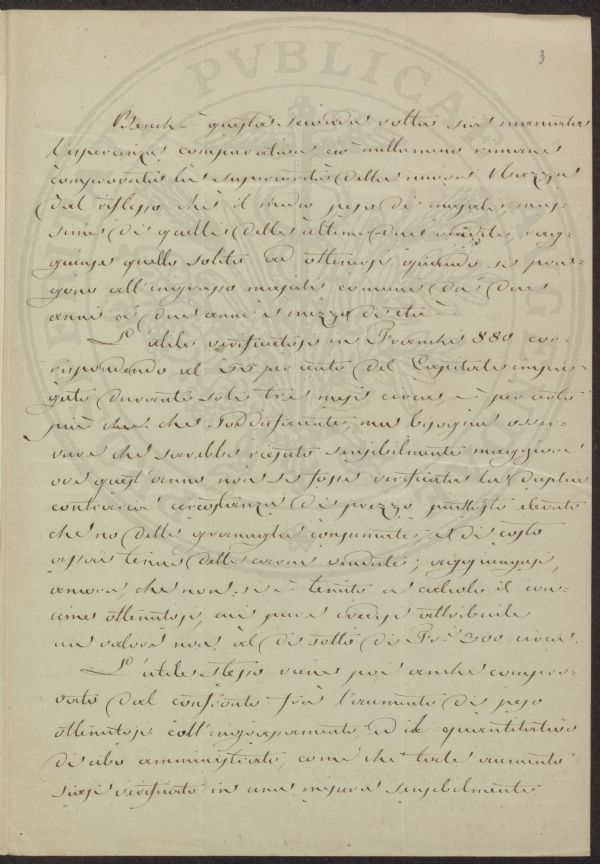 3
Benchè questa seconda volta sia mancata
l'esperienza comparativa ciò nullameno rimane
comprovata la superiorità della nuova Razza
dal riflesso che il medio peso di majali, mas-
sime di quelli delle ultime due vendite rag-
giunse quello solito ad ottenersi quando si pon-
gono all'ingrasso majali comuni dai due
anni ai due anni e mezzo di età
L'utile verificatosi in Franchi 880 cor-
rispondendo al 55 per cento del Capitale impie-
gato durante soli tre mesi circa, è per certo
più che soddisfacente, ma bisogna osser-
vare che sarebbe riescito sensibilmente maggiore
ove quest'anno non si fosse verificata la duplice
contraria circostanza di prezzo piuttosto elevato
che no delle granaglie consumate, e di costo
assai tenue della carne vendute; aggiungasi,
ancora, che non si è tenuto a calcolo il con-
cime ottenutosi, cui pure devesi attribuire
un valore non al di sotto di Fr. 300 circa.
L'utile stesso viene poi anche compro-
vato dal confronto frà l'aumento di peso
ottenutosi coll'ingrassamento, ed il quantitativo
di cibo amministrato, come che tale aumento
siasi verificato in una misura sensibilmente
PVBLICA